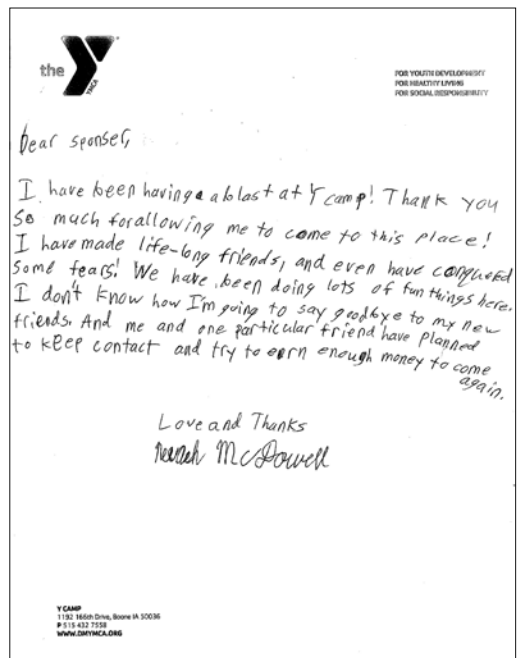 the
YMCA
FOR YOUTH DEVELOPMENT
FOR HEALTHY LIVING
FOR SOCIAL RESPONSIBILITY
Dear sponser,
I have been having a a blast at Y camp! Thank you
so much for allowing me to come to this place!
I have made life-long friends, and even have conquered
some fears! We have been doing lots of fun things here.
I don't know how I'm going to say goodbye to my new
friends. And me and one particular friend have planned
to keep contact and try to earn enough money to come
again.
Love and Thanks
McDowell
Y CAMP
1192 166th Drive, Boone IA 50036
P 515 432 7558
WWW.DMYMCA.ORG